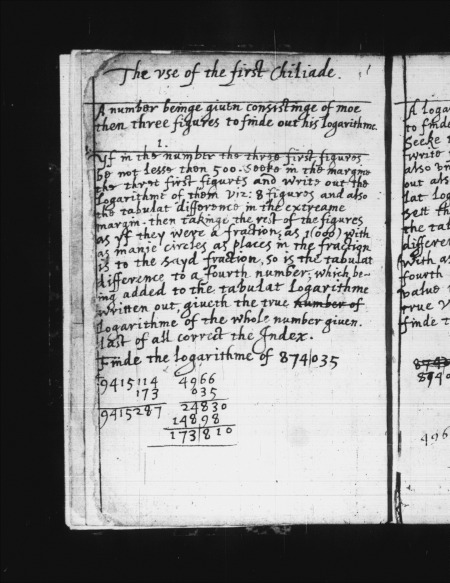 The vse of the first Chiliade.
A number beinge giuen consistinge of moe
then three figures to finde out his logarithme.
1.
Yf in the number the three first figures
be not lesse then 500. Seeke in the margine
the three first figures and write out the
logarithme of them viz: 8 figures and also
the tabulat difference in the extreame
margin. then takinge the rest of the figures
as yf they were a fraction, as 1(000) with
as manie circles as places in the fraction
is to the sayd fraction, so is the tabulat
difference to a fourth number, which be-
ing added to the tabulat logarithme
written out, giueth the true number of
logarithme of the whole number giuen.
last of all correct the Index.
Finde the logarithme of 874|035
9415114 4966
173 035
9415287 24830
14898
173|810
A loga
to finde
Seeke
write
also
out als
lat log
sett th
the tab
differen
with as
fourth
value
true v
finde t
874
8740
496